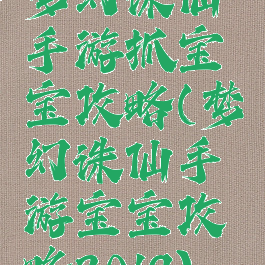 梦幻诛仙
手游抓宝
宝攻略(梦
幻诛仙手
游宝宝攻
略2019)